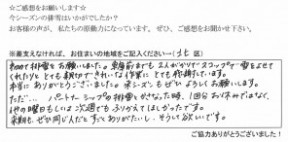 ☆ご感想をお願いします☆
今シーズンの排雪はいかがでしたか？
お客様の声が、私たちの原動力になっています。ぜひ、ご感想をお聞かせ下さい。
※差支えなければ、お住まいの地域をご記入ください→（北 区）
初めて排雪をお願いしました。車庫前までも 2人がかりでスコップで雪をよせて
くれたりと とても親切できれいな作業に とても感謝しています。
本当にありがとうございました。来シーズンもぜひよろしくお願いします。
ただ… パートナーシップの排雪とかさなった時、1回分お休みではなくて、
他の曜日もしくは次週でも ふりかえてほしかったです。
来期も、ぜひ同じ人だと すごくありがたいし、そういう欲いです。
ご協力ありがとうございました！